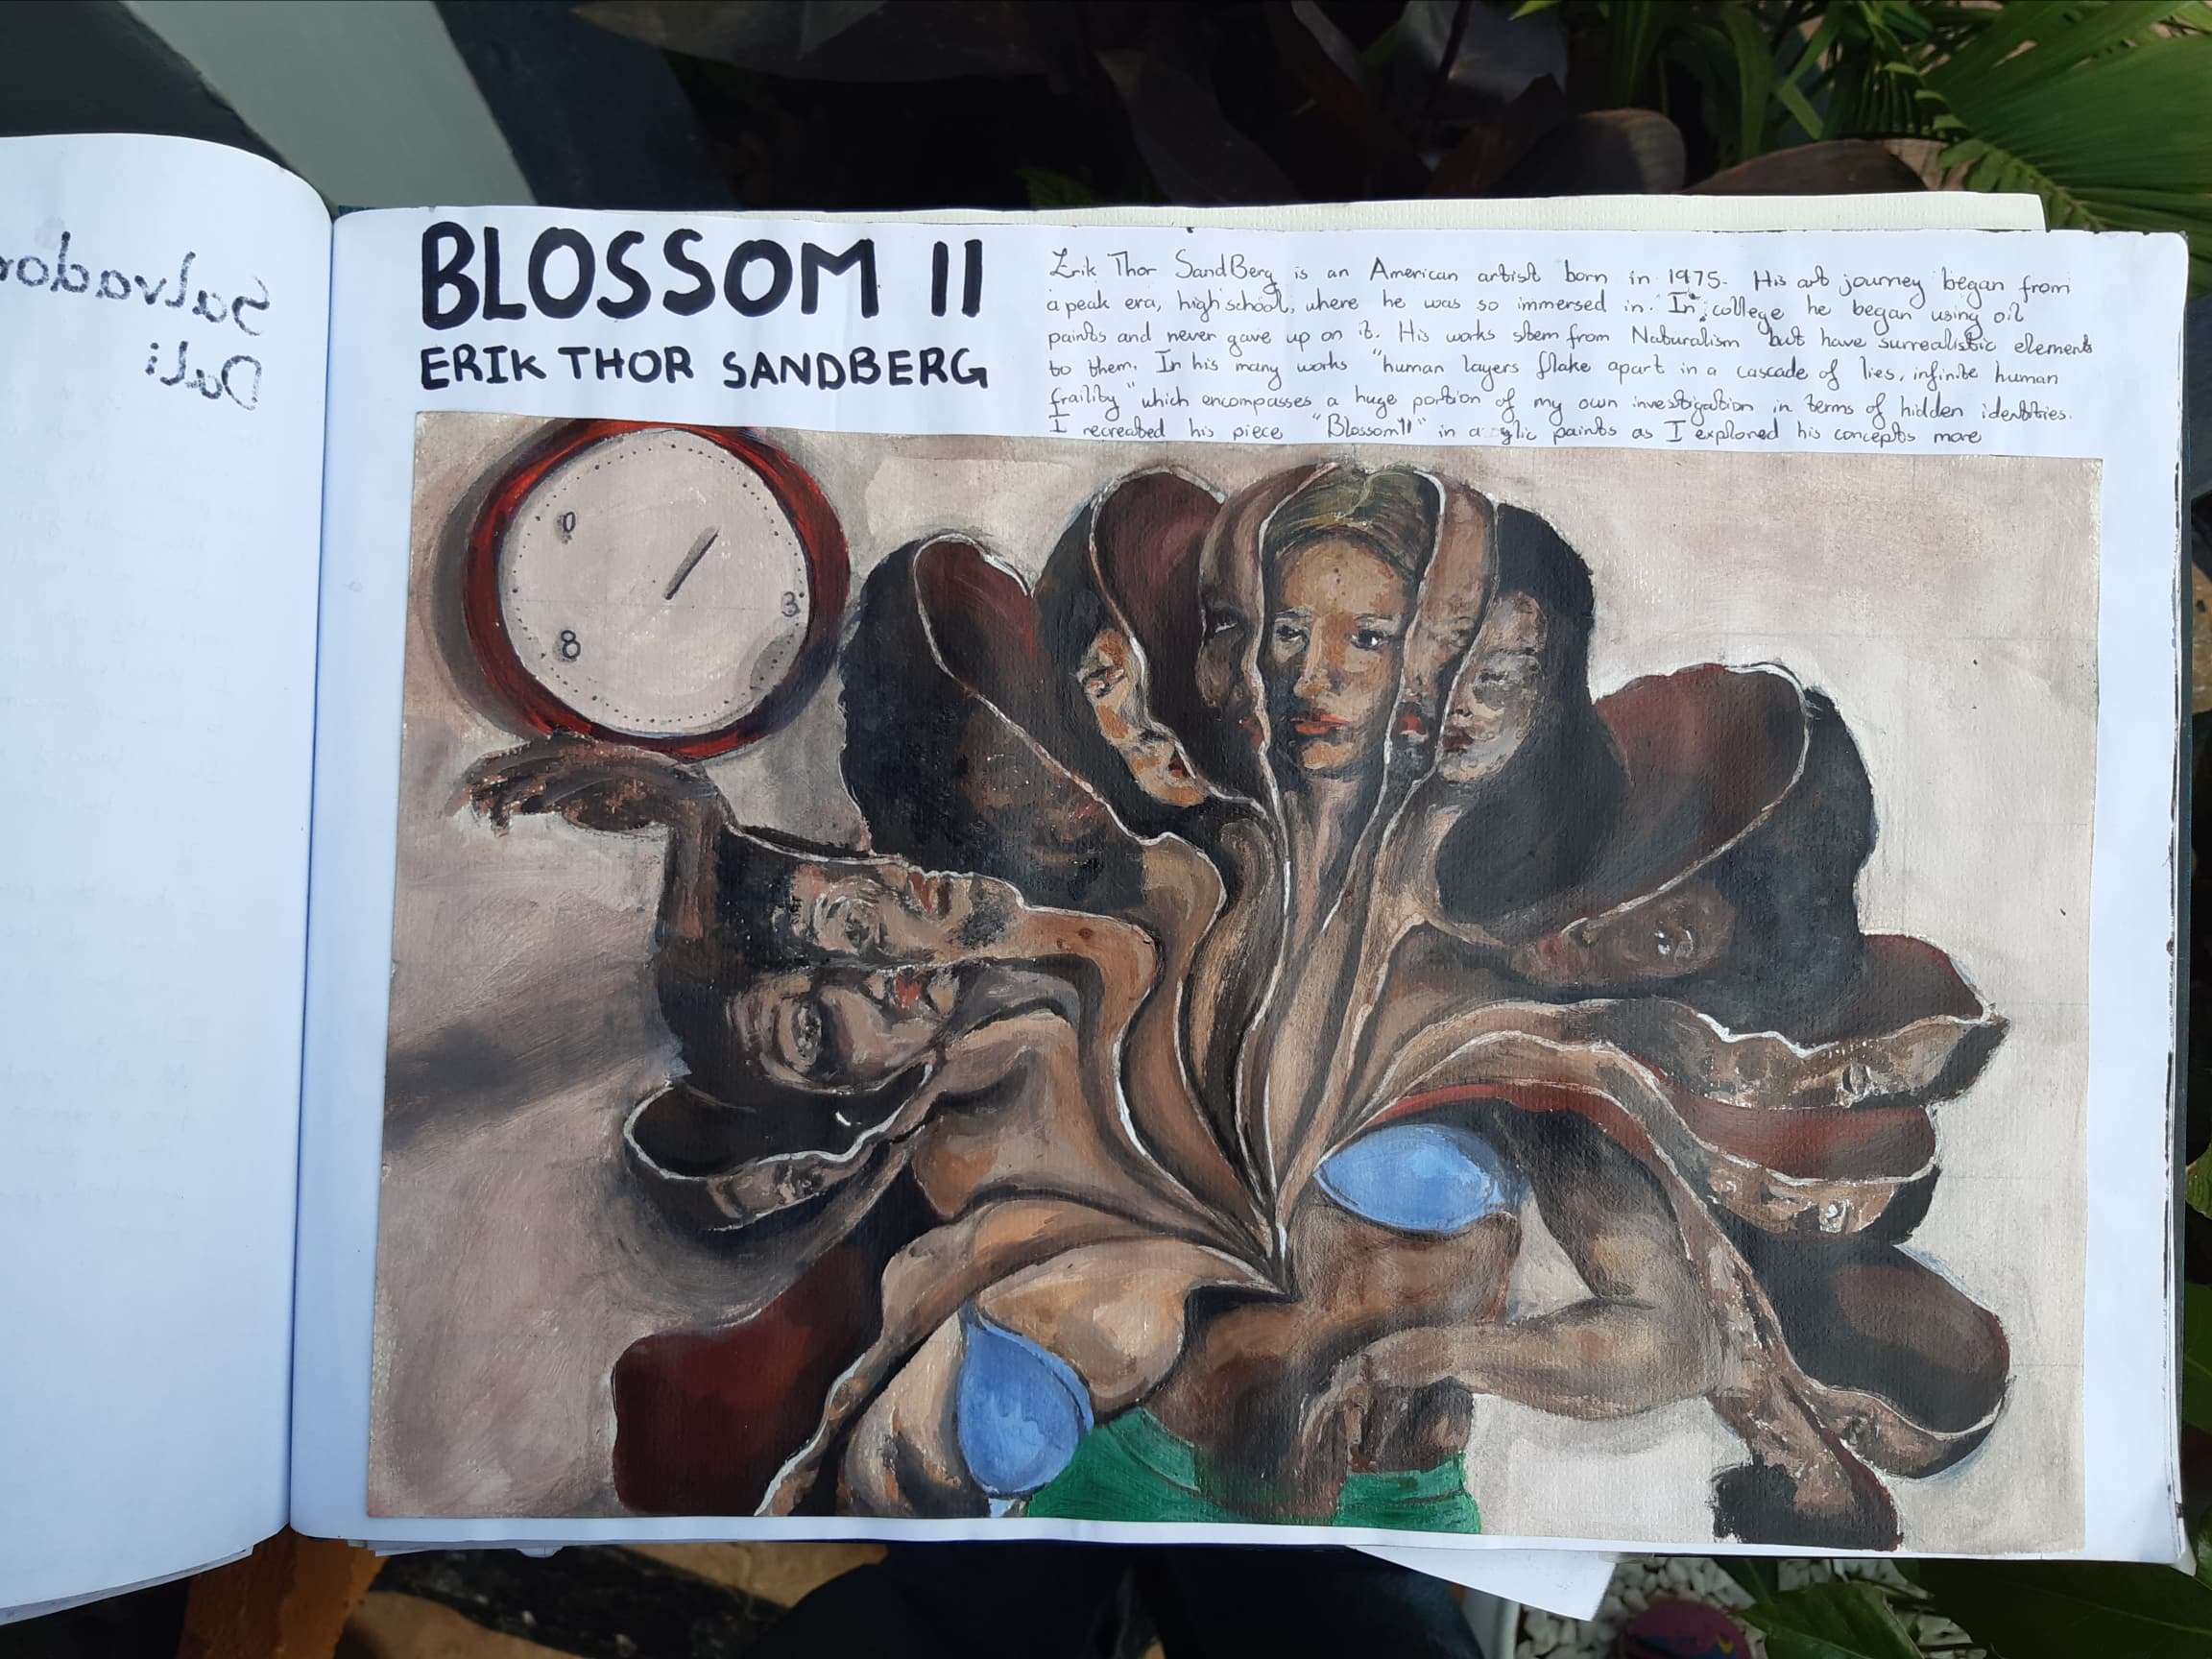 Salvador
Dali
BLOSSOM II
ERIK THOR SANDBERG
Erik Thor SandBerg is an American artist born in 1975. His art journey began from
a peak era, high school, where he was so immersed in. In college he began using oil
paints and never gave up on it. His works stem from Naturalism but have surrealistic elements
to them. In his many works "human layers flake apart in a cascade of lies, infinite human
fraility" which encompasses a huge portion of my own investigation in terms of hidden identities.
I recreated his piece "BlossomII" in paints as I explored his concepts more
0
3
8